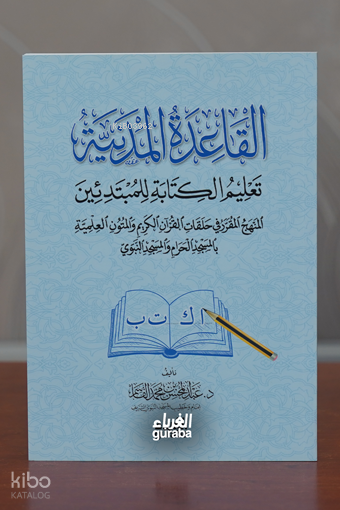 القَاعِدَةُ المَدَنِيَّةُ
تَعْلِيمُ الكِتَابَةِ لِلْمُبْتَدِئِينَ
المَنْهَجُ المُقَرَّرُ فِي حَلَقَاتِ القُرْآنِ الكَرِيمِ وَالمُتُونِ العِلْمِيَّةِ
بِالمَسْجِدِ الحَرَامِ وَالمَسْجِدِ النَّبَوِيِّ
اك ت ب
تأليف
د. عبد المحسن بن محمد القاسم
إمام وخطيب المسجد النبوي الشريف
الغرباء
guraba
kibo
KATALOG